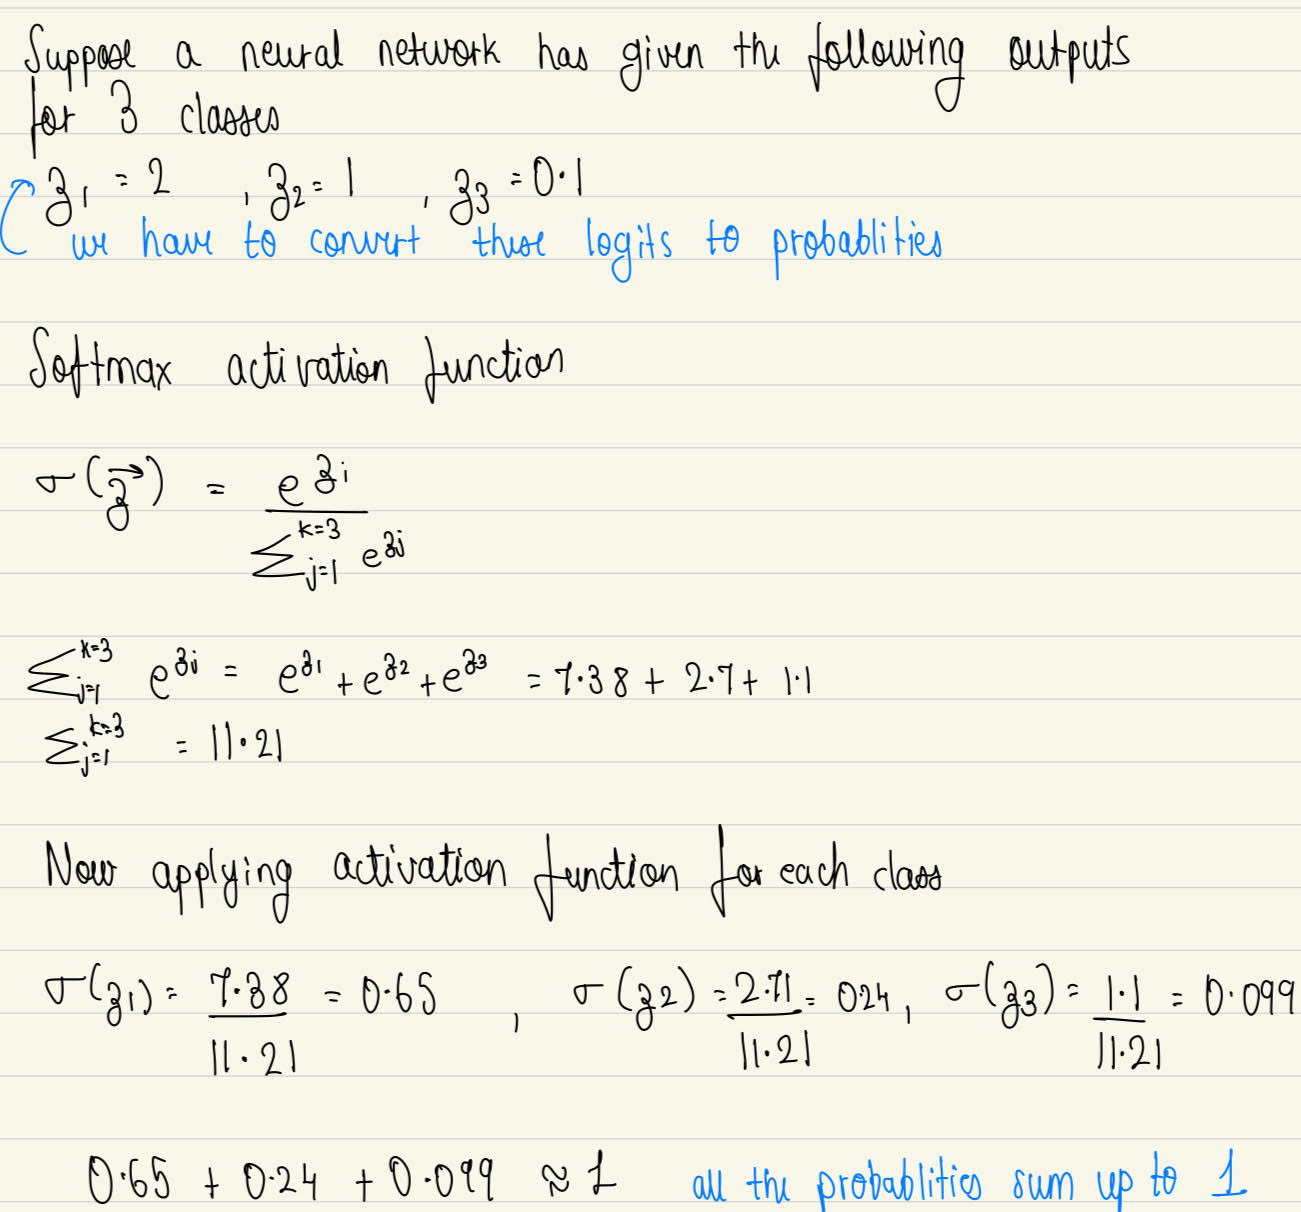 Suppose a neural network has given the following outputs
for 3 classes
z₁ = 2 , z₂ = 1 , z₃ = 0.1
we have to convert these logits to probablities
Softmax activation function
σ(z⃗) = e^{zᵢ} / Σ_{j=1}^{k=3} e^{zj}
Σ_{j=1}^{k=3} e^{zj} = e^{z₁} + e^{z₂} + e^{z₃} = 7.38 + 2.7 + 1.1
Σ_{j=1}^{k=3} = 11.21
Now applying activation function for each class
σ(z₁) = 7.38 / 11.21 = 0.65 , σ(z₂) = 2.71 / 11.21 = 0.24 , σ(z₃) = 1.1 / 11.21 = 0.099
0.65 + 0.24 + 0.099 ≈ 1 all the probablities sum up to 1